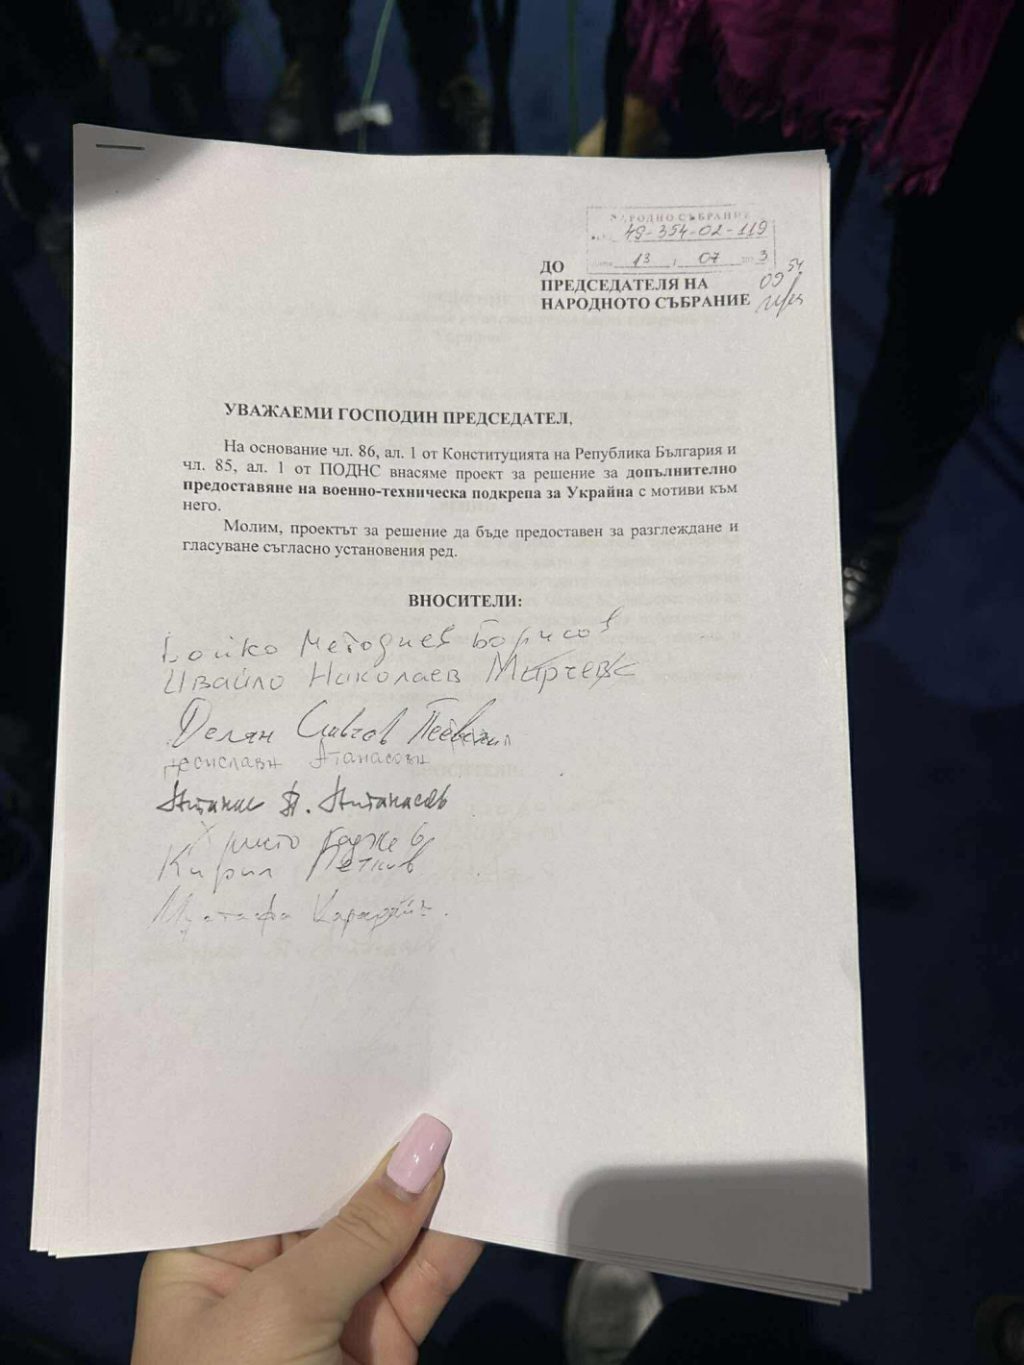 НАРОДНО СЪБРАНИЕ
49-354-02-119
13 07 3
ДО
ПРЕДСЕДАТЕЛЯ НА
НАРОДНОТО СЪБРАНИЕ
09 54
УВАЖАЕМИ ГОСПОДИН ПРЕДСЕДАТЕЛ,
На основание чл. 86, ал. 1 от Конституцията на Република България и
чл. 85, ал. 1 от ПОДНС внасяме проект за решение за допълнително
предоставяне на военно-техническа подкрепа за Украйна с мотиви към
него.
Молим, проектът за решение да бъде предоставен за разглеждане и
гласуване съгласно установения ред.
ВНОСИТЕЛИ:
Бойко Методиев Борисов
Ивайло Николаев Мирчев
Делян Славчов Пеевски
Десислава Атанасова
Атанас П. Атанасов
Христо Гаджев
Кирил Петков
Мустафа Карадайъ